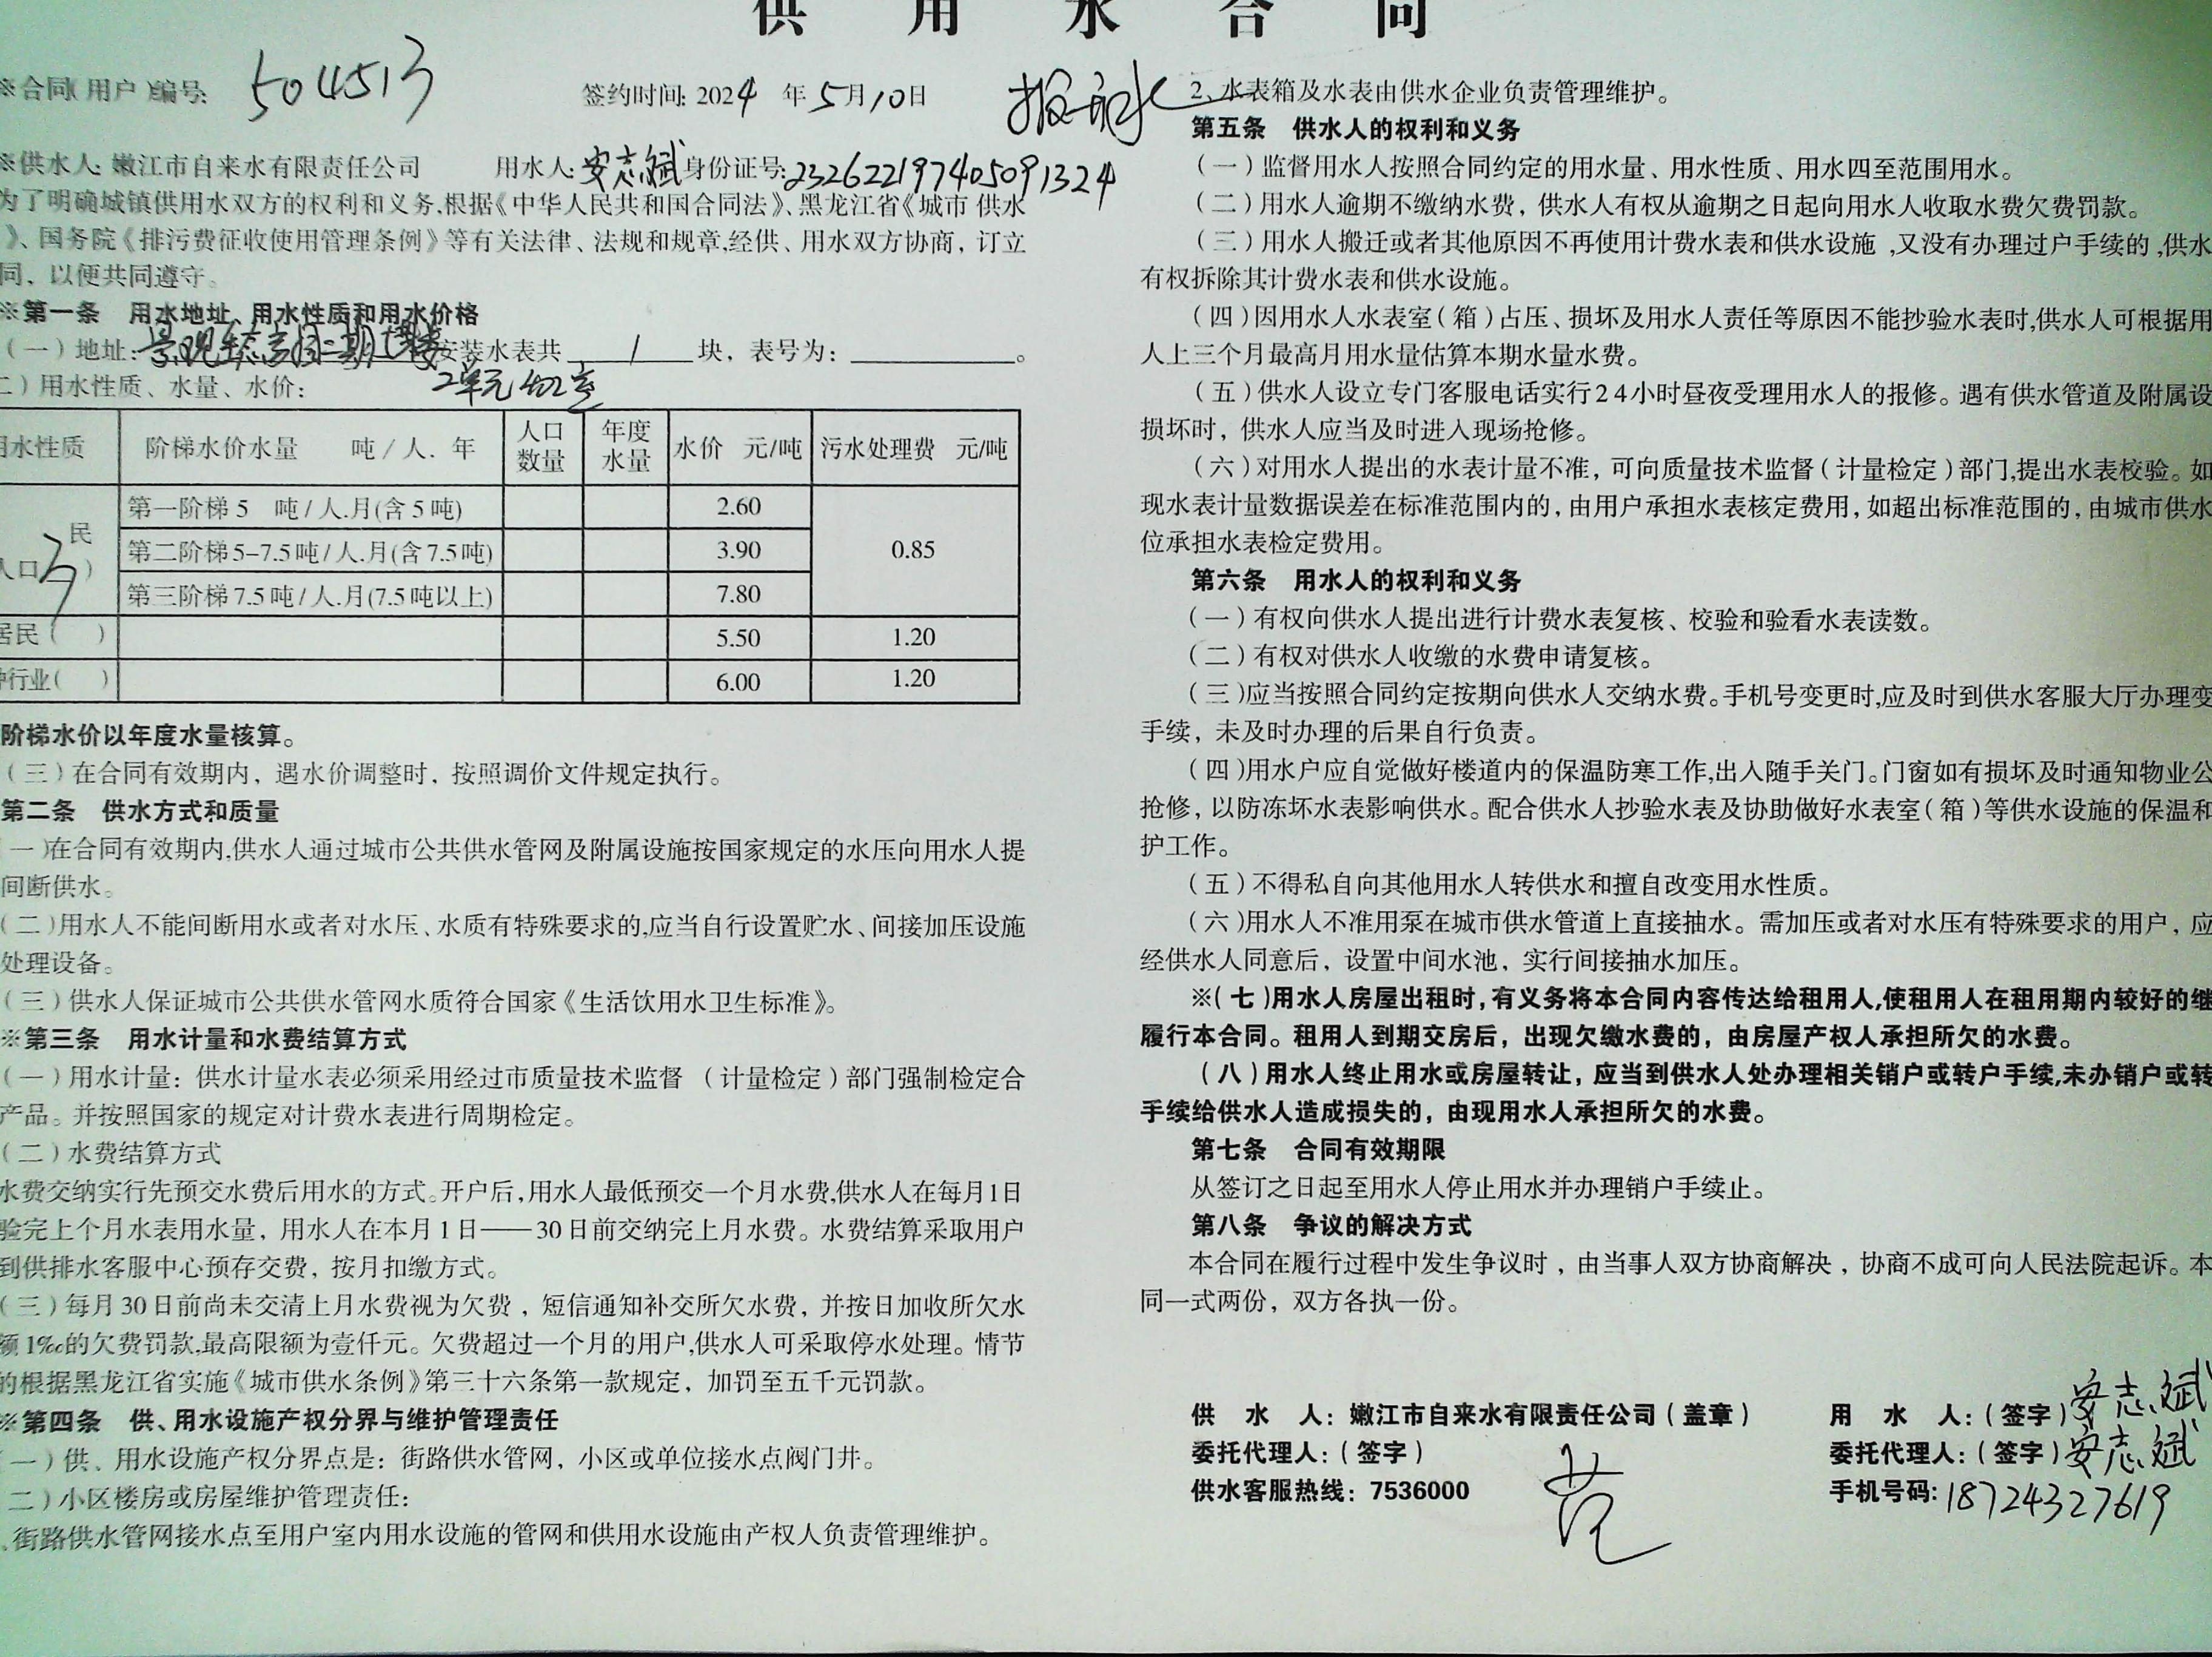 供用水合同
※合同(用户)编号: 504513 签约时间: 2024 年 5月10日
※供水人: 嫩江市自来水有限责任公司 用水人: 安志斌 身份证号: 232622197405091324
为了明确城镇供用水双方的权利和义务,根据《中华人民共和国合同法》、黑龙江省《城市 供水
》、国务院《排污费征收使用管理条例》等有关法律、法规和规章,经供、用水双方协商，订立
同，以便共同遵守。
※第一条 用水地址、用水性质和用水价格
(一)地址: 景观生态家园二期 安装水表共 1 块，表号为: 。
2单元402室
二)用水性质、水量、水价:
用水性质 阶梯水价水量 吨/人. 年 人口数量 年度水量 水价 元/吨 污水处理费 元/吨
民
人口 3 )
第一阶梯 5 吨/人.月(含 5 吨) 2.60 0.85
第二阶梯 5–7.5 吨/人.月(含 7.5 吨) 3.90
第三阶梯 7.5 吨/人.月(7.5 吨以上) 7.80
居民 ( ) 5.50 1.20
种行业( ) 6.00 1.20
阶梯水价以年度水量核算。
(三)在合同有效期内，遇水价调整时，按照调价文件规定执行。
第二条 供水方式和质量
一)在合同有效期内,供水人通过城市公共供水管网及附属设施按国家规定的水压向用水人提
间断供水。
(二)用水人不能间断用水或者对水压、水质有特殊要求的,应当自行设置贮水、间接加压设施
处理设备。
(三)供水人保证城市公共供水管网水质符合国家《生活饮用水卫生标准》。
※第三条 用水计量和水费结算方式
(一)用水计量：供水计量水表必须采用经过市质量技术监督 (计量检定)部门强制检定合
产品。并按照国家的规定对计费水表进行周期检定。
(二)水费结算方式
水费交纳实行先预交水费后用水的方式。开户后,用水人最低预交一个月水费,供水人在每月1日
验完上个月水表用水量，用水人在本月 1 日——30 日前交纳完上月水费。水费结算采取用户
到供排水客服中心预存交费，按月扣缴方式。
(三)每月 30 日前尚未交清上月水费视为欠费，短信通知补交所欠水费，并按日加收所欠水
额 1‰的欠费罚款,最高限额为壹仟元。欠费超过一个月的用户,供水人可采取停水处理。情节
的根据黑龙江省实施《城市供水条例》第三十六条第一款规定，加罚至五千元罚款。
※第四条 供、用水设施产权分界与维护管理责任
一)供、用水设施产权分界点是：街路供水管网，小区或单位接水点阀门井。
二)小区楼房或房屋维护管理责任:
、街路供水管网接水点至用户室内用水设施的管网和供用水设施由产权人负责管理维护。
2、水表箱及水表由供水企业负责管理维护。
第五条 供水人的权利和义务
(一)监督用水人按照合同约定的用水量、用水性质、用水四至范围用水。
(二)用水人逾期不缴纳水费，供水人有权从逾期之日起向用水人收取水费欠费罚款。
(三)用水人搬迁或者其他原因不再使用计费水表和供水设施 ,又没有办理过户手续的 ,供水
有权拆除其计费水表和供水设施。
(四)因用水人水表室(箱)占压、损坏及用水人责任等原因不能抄验水表时,供水人可根据用
人上三个月最高月用水量估算本期水量水费。
(五)供水人设立专门客服电话实行24小时昼夜受理用水人的报修。遇有供水管道及附属设
损坏时，供水人应当及时进入现场抢修。
(六)对用水人提出的水表计量不准，可向质量技术监督(计量检定)部门,提出水表校验。如
现水表计量数据误差在标准范围内的，由用户承担水表核定费用，如超出标准范围的，由城市供水
位承担水表检定费用。
第六条 用水人的权利和义务
(一)有权向供水人提出进行计费水表复核、校验和验看水表读数。
(二)有权对供水人收缴的水费申请复核。
(三)应当按照合同约定按期向供水人交纳水费。手机号变更时,应及时到供水客服大厅办理变
手续，未及时办理的后果自行负责。
(四)用水户应自觉做好楼道内的保温防寒工作,出入随手关门。门窗如有损坏及时通知物业公
抢修，以防冻坏水表影响供水。配合供水人抄验水表及协助做好水表室(箱)等供水设施的保温和
护工作。
(五)不得私自向其他用水人转供水和擅自改变用水性质。
(六)用水人不准用泵在城市供水管道上直接抽水。需加压或者对水压有特殊要求的用户，应
经供水人同意后，设置中间水池，实行间接抽水加压。
※(七)用水人房屋出租时,有义务将本合同内容传达给租用人,使租用人在租用期内较好的继
履行本合同。租用人到期交房后，出现欠缴水费的，由房屋产权人承担所欠的水费。
(八)用水人终止用水或房屋转让，应当到供水人处办理相关销户或转户手续,未办销户或转
手续给供水人造成损失的，由现用水人承担所欠的水费。
第七条 合同有效期限
从签订之日起至用水人停止用水并办理销户手续止。
第八条 争议的解决方式
本合同在履行过程中发生争议时，由当事人双方协商解决，协商不成可向人民法院起诉。本
同一式两份，双方各执一份。
供 水 人：嫩江市自来水有限责任公司(盖章) 用 水 人:(签字) 安志斌
委托代理人:(签字) 范 委托代理人:(签字) 安志斌
供水客服热线：7536000 手机号码: 18724327619